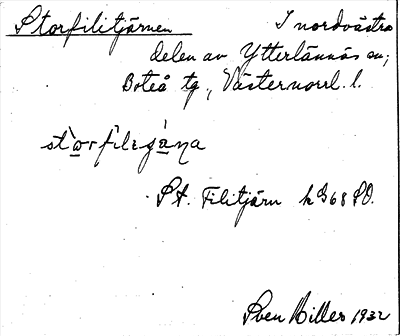 Storfilitjärnen I nordvästra
delen av Ytterlännäs sn;
Boteå tg., Västernorrl. l.
St. Filitjärn h568 SO.
Sven Hiller 1932